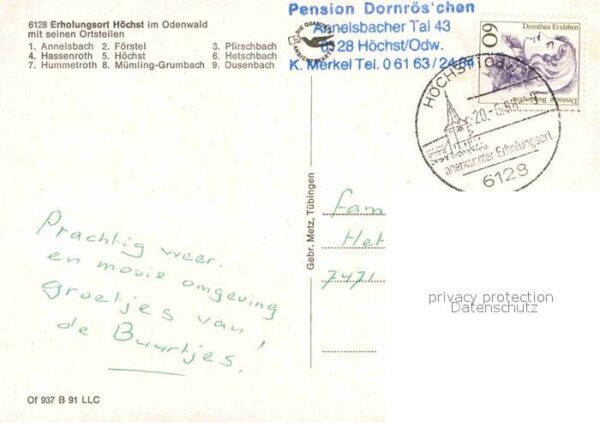 6128 Erholungsort Höchst im Odenwald
mit seinen Ortsteilen
1. Annelsbach 2. Förstel 3. Pfirschbach
4. Hassenroth 5. Höchst 6. Hetschbach
7. Hummetroth 8. Mümling-Grumbach 9. Dusenbach
Pension Dornrös'chen
Annelsbacher Tal 43
6128 Höchst/Odw.
K. Merkel Tel. 0 61 63/
Dorothea Erxleben
60
Deutsche Bundespost
HÖCHST
anerkannter Erholungsort
6128
Gebr. Metz, Tübingen
Prachtig weer.
en mooie omgeving
Groetjes van!
de Buurtjes.
Fam
Het
7471
privacy protection
Datenschutz
Of 937 B 91 LLC